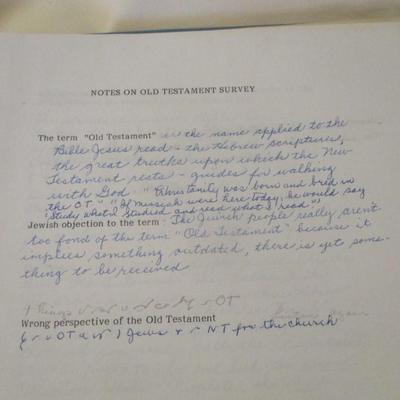 NOTES ON OLD TESTAMENT SURVEY
The term "Old Testament" is the name applied to the
Bible Jesus read - the Hebrew scriptures,
the great truths upon which the New
Testament rests - guides for walking
with God. "Christianity was born and bred in
the OT" "If Messiah were here today, he would say
'Study what I studied and read what I read.'"
Jewish objection to the term: The Jewish people really aren't
too fond of the term "Old Testament" because it
implies something outdated, there is yet some-
thing to be received
things OT
Wrong perspective of the Old Testament
OT Jews + NT for the church